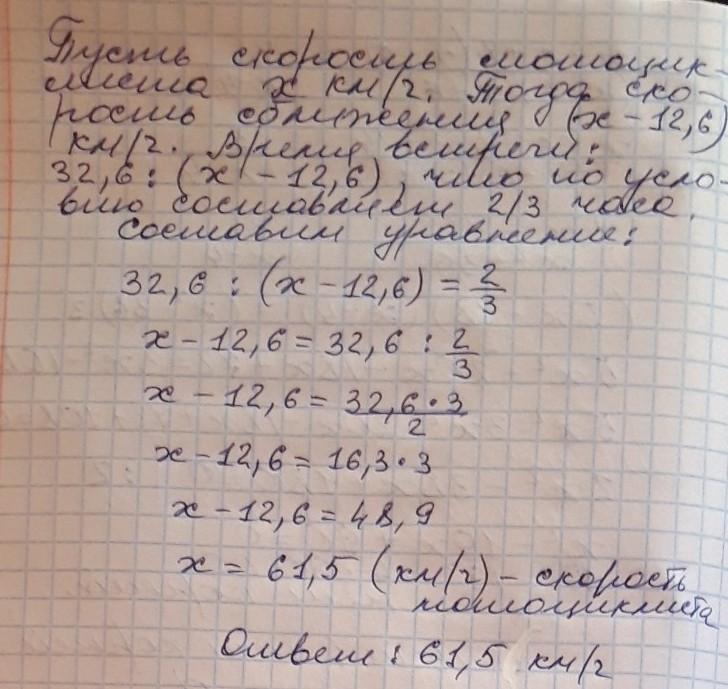 Пусть скорость мотоцик-
листа x км/ч. Тогда ско-
рость сближения (x - 12,6)
км/ч. Время встречи:
32,6 : (x - 12,6), что по усло-
вию составляет 2/3 часа.
Составим уравнение:
32,6 : (x - 12,6) = 2/3
x - 12,6 = 32,6 : 2/3
x - 12,6 = 32,6 · 3/2
x - 12,6 = 16,3 · 3
x - 12,6 = 48,9
x = 61,5 (км/ч) - скорость
мотоциклиста
Ответ: 61,5 км/ч